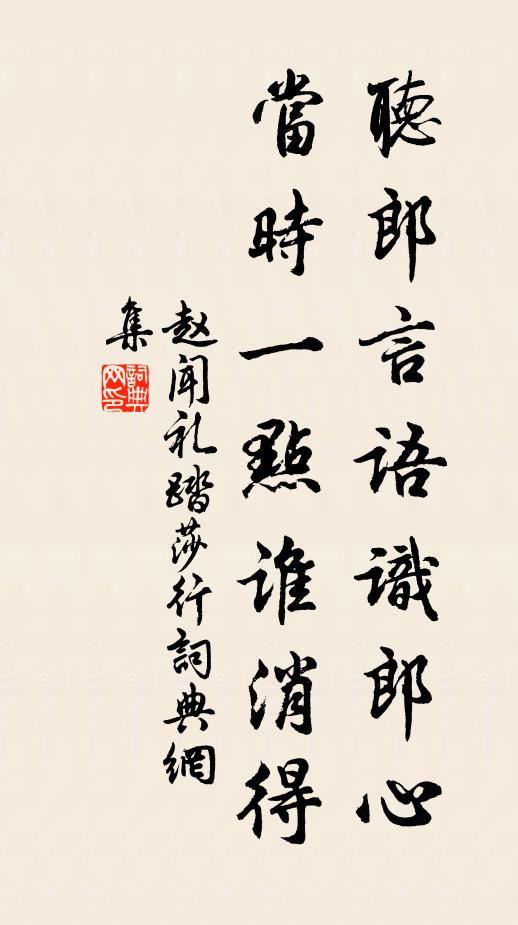 聽郎言語識郎心
當時一點誰消得
赵闻礼踏莎行詞典網
集
詞典网印